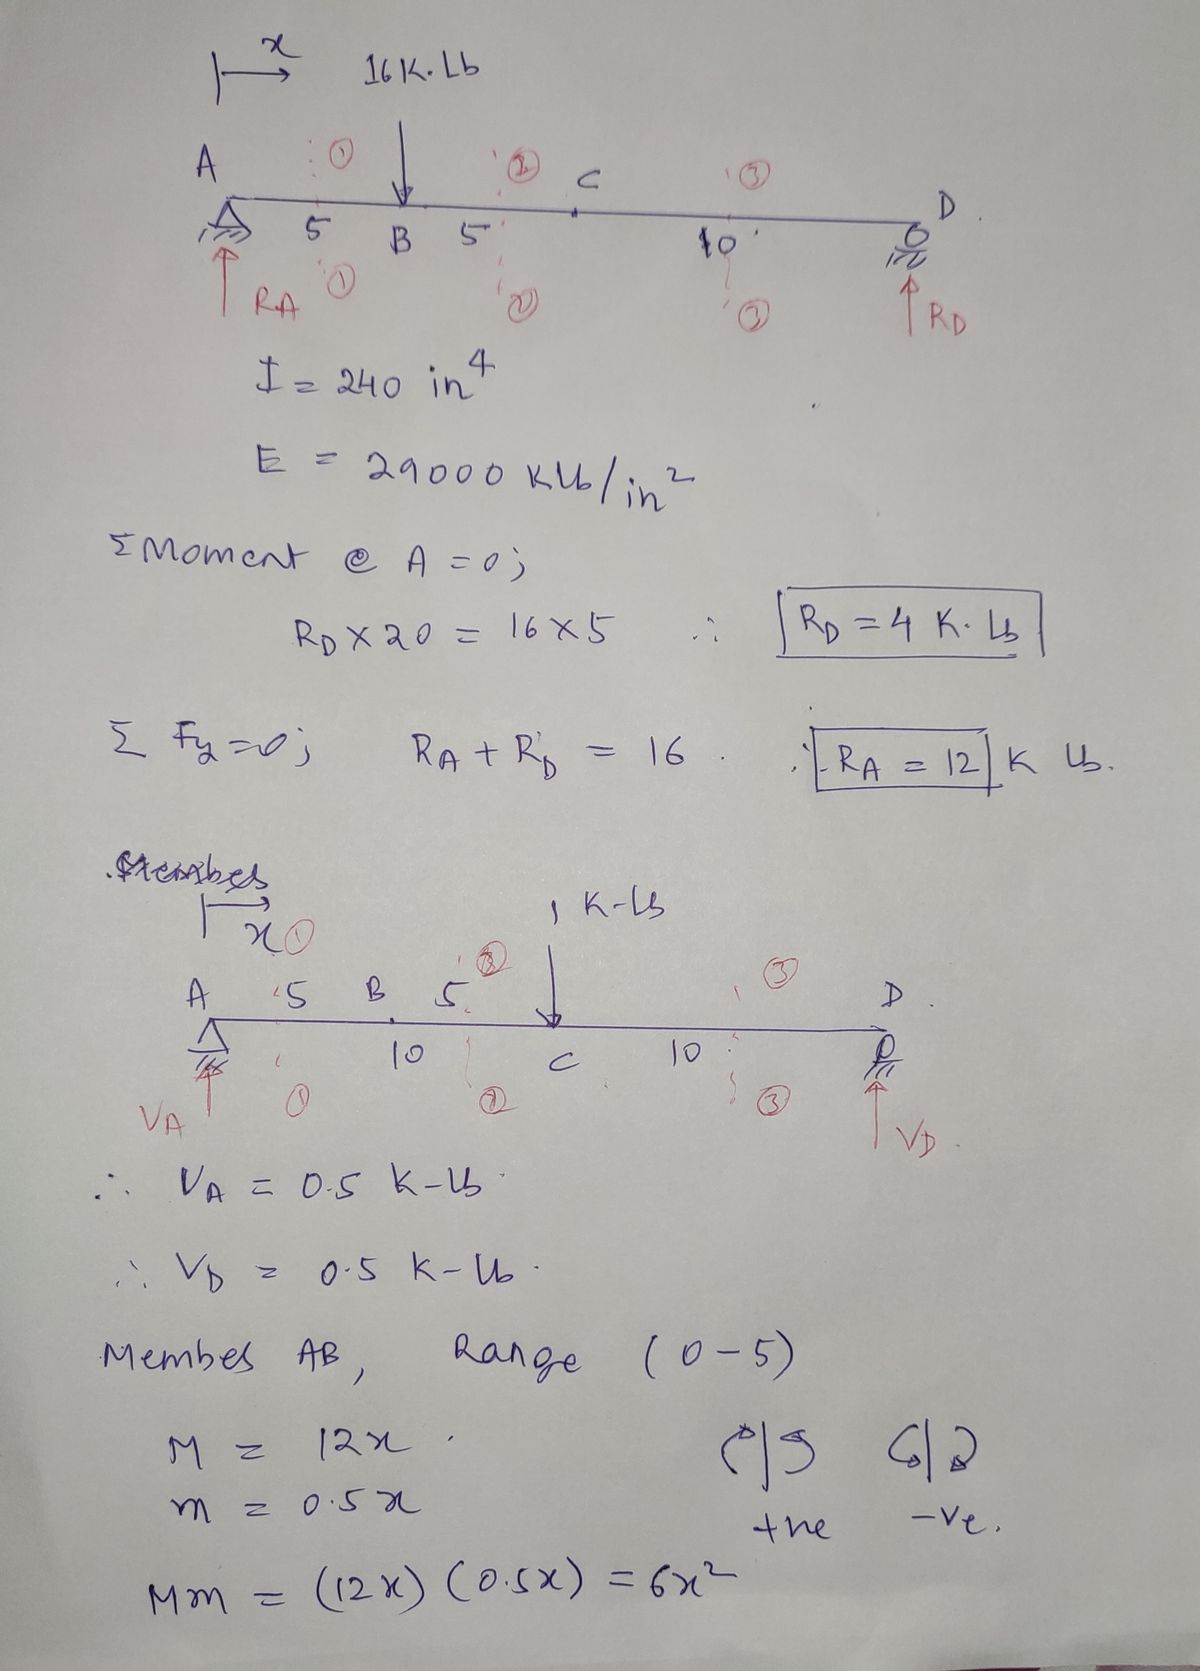 x 16 K. Lb
A ① ② C ③ D
5 B 5 10
RA ① ② ③ RD
I = 240 in⁴
E = 29000 Klb/in²
Σ Moment @ A = 0;
R_D × 20 = 16 × 5 ∴ R_D = 4 K. Lb
Σ Fy = 0; R_A + R_D = 16 . ∴ R_A = 12 K lb.
x ① 1 K-Lb
A 5 B 5 ② ③ D .
10 C 10
V_A ① ② ③ V_D .
∴ V_A = 0.5 K-lb
∴ V_D = 0.5 K-lb.
Member AB, Range (0 - 5)
M = 12x .
m = 0.5x +ve -ve.
Mm = (12x) (0.5x) = 6x²